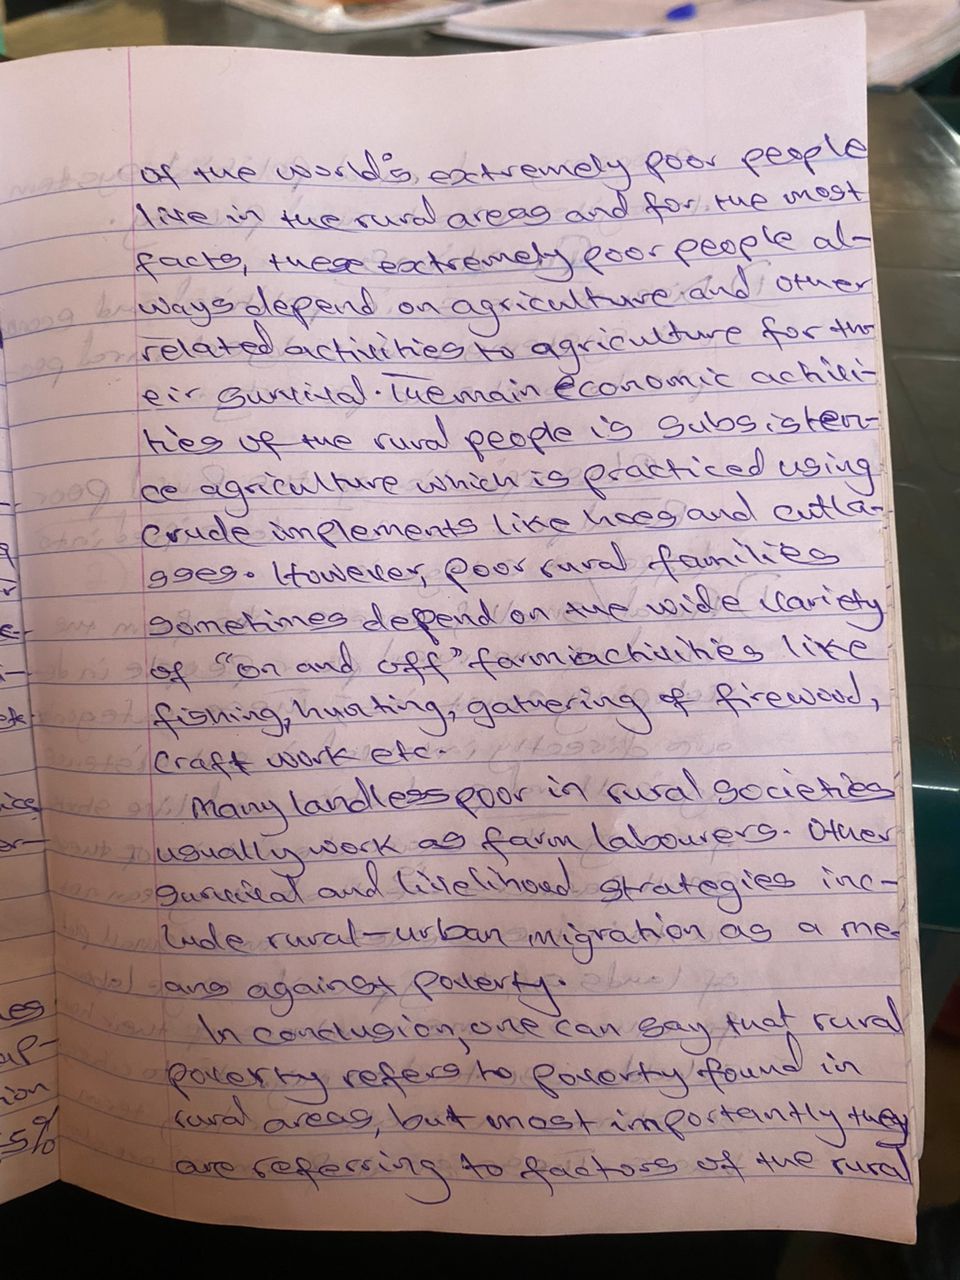 of the world's extremely poor people
live in the rural areas and for the most
facts, these extremely poor people al-
ways depend on agriculture and other
related activities to agriculture for th-
eir survival. The main economic activi-
ties of the rural people is subsisten-
ce agriculture which is practiced using
crude implements like hoes and cutla-
sses. However, poor rural families
sometimes depend on the wide variety
of "on and off" farm activities like
fishing, hunting, gathering of firewood,
craft work etc.
Many landless poor in rural societies
usually work as farm labourers. Other
survival and livelihood strategies inc-
lude rural-urban migration as a me-
ans against poverty.
In conclusion, one can say that rural
poverty refers to poverty found in
rural areas, but most importantly they
are referring to factors of the rural
5%